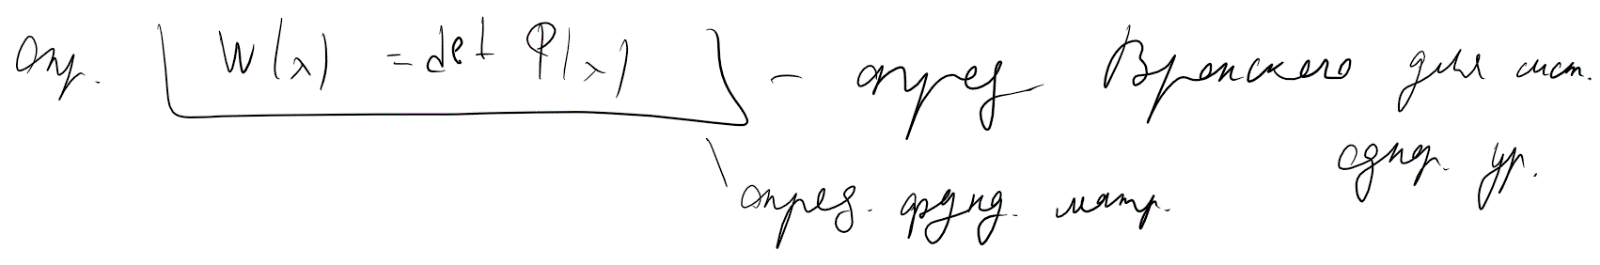 Опр. W(x) = det Φ(x) - опред Вронского для сист.
однор. ур.
опред. фунд. матр.